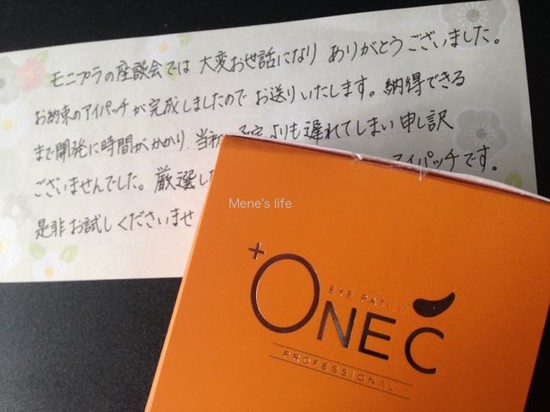 モニプラの座談会では 大変お世話になり ありがとうございました。
お約束のアイパッチが完成しましたので お送りいたします。納得できる
まで開発に時間がかかり、当初 よりも遅れてしまい申し訳
ございませんでした。厳選した アイパッチです。
是非お試しくださいませ
Mene's life
EYE PATCH
+ONEC
PROFESSIONAL